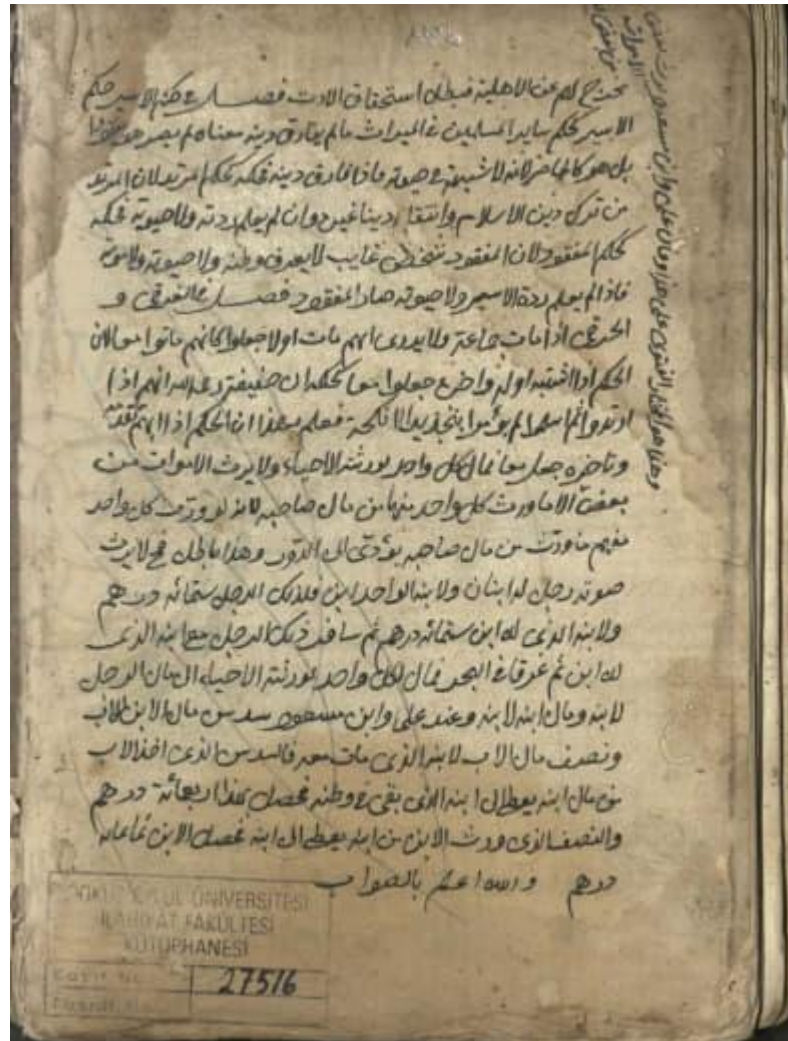 يخرج لهم عن الاهلية فيبطل استحقاق الارث فصل في حكم الاسير حكم
الاسير كحكم ساير المسلمين في الميراث ما لم يفارق دينه معناه لم يصر هو
بل هو كالحاضر لانه لا شبهة في حيوته فاذا فارق دينه فحكمه كحكم المرتد لان المرتد
من ترك دين الاسلام وانتقل دينا غيره وان لم يعلم ردته ولا حيوته فحكمه
كحكم المفقود لان المفقود شخص غايب لا يعرف وطنه ولا حيوته ولا موته
فاذا لم يعلم ردة الاسير ولا حيوته صار المفقود فصل في الغرقى و
الحرقى اذا مات جماعة ولا يدرى ايهم مات اولا جعلوا كانهم ماتوا معا لان
الحكم اذا اشتبه اوله واخره جعلوا معا كحكم ابى حنيفة رحمه الله انهم اذا
ارتدوا ثم اسلموا لم يؤمروا بتجديد الانكحة فعلم بهذا ان الحكم اذا ابهم تقدمه
وتاخره جعل معا فمال كل واحد لورثته الاحياء ولا يرث الاموات من
بعض الا ما ورث كل واحد منهما من مال صاحبه لانه لو ورث كل واحد
منهم ما ورث من مال صاحبه يؤدى الى الدور وهذا باطل فح لا يرث
صوته رجل له ابنان ولابنه الواحد ابن فلذلك الرجل ستمائه درهم
ولابنه الذى له ابن ستمائه درهم ثم سافر ذلك الرجل مع ابنه الذى
له ابن ثم غرقا فى البحر فمال لكل واحد لورثته الاحياء اى مال الرجل
لابنه ومال ابنه لابنه وعند على وابن مسعود سدس مال الابن للاب
ونصف مال الاب لابنه الذى مات معه فالسدس الذى اخذ الاب
من مال ابنه يعطى الى ابنه الذى بقى فى وطنه فحصل لهذا اربعمائة درهم
والنصف الذى ورث الابن من ابيه يعطى الى ابنه فحصل الابن ثمانمائه
درهم والله اعلم بالصواب
وهذا هو المختار الفتوى على هذا وقال على وابن مسعود يرث بعض
الاموات
من بعض
DOKUZ EYLÜL ÜNİVERSİTESİ
İLAHİYAT FAKÜLTESİ
KÜTÜPHANESİ
27516